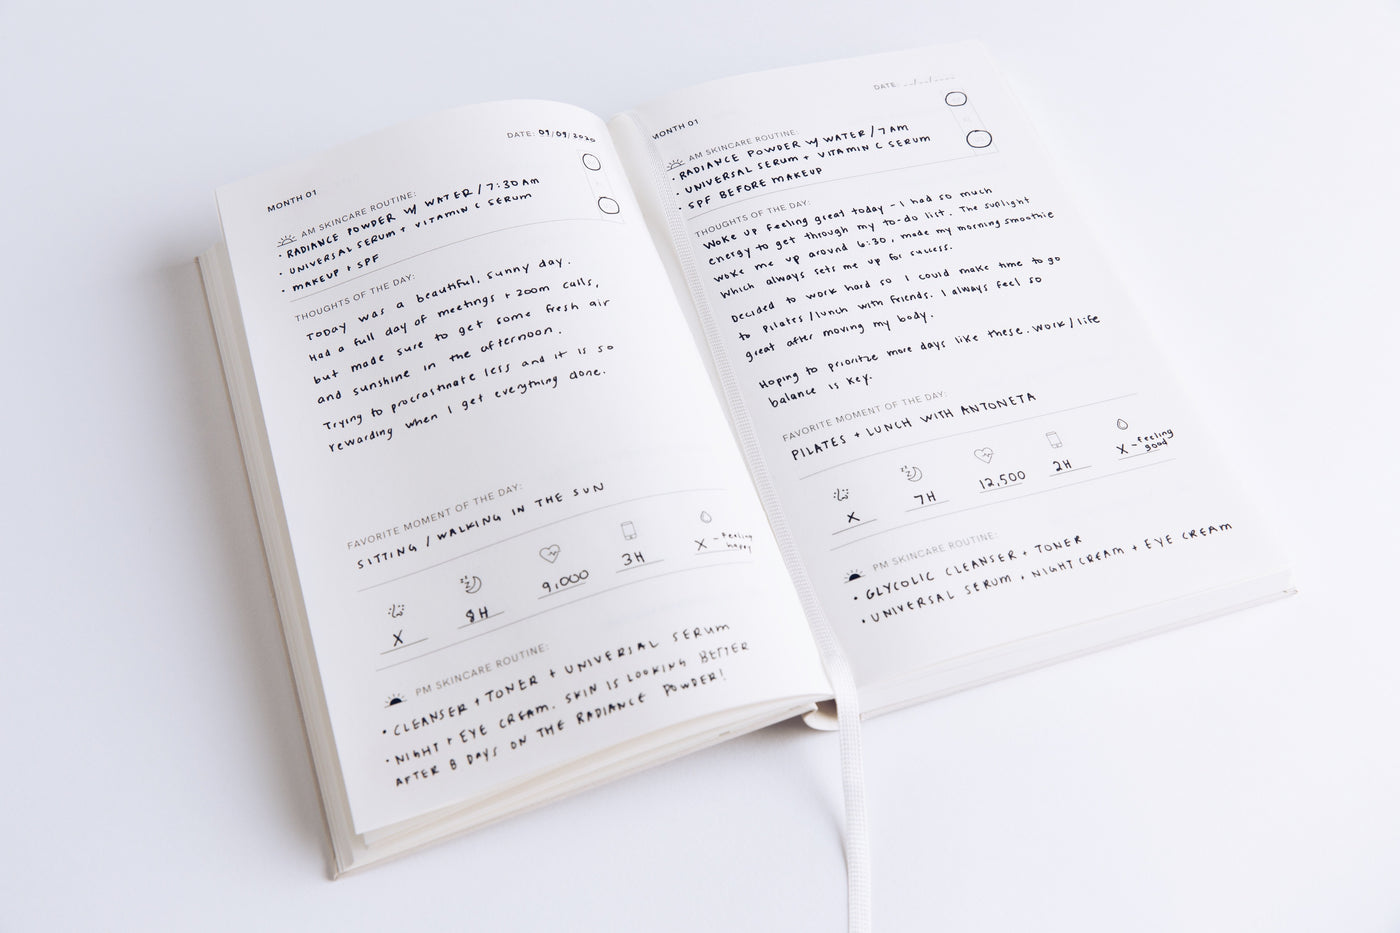 MONTH 01
DATE: 09/09/2020
AM SKINCARE ROUTINE:
• RADIANCE POWDER W/ WATER / 7:30AM
• UNIVERSAL SERUM + VITAMIN C SERUM
• MAKEUP + SPF
THOUGHTS OF THE DAY:
TODAY was a beautiful, sunny day.
Had a full day of meetings + zoom calls,
but made sure to get some fresh air
and sunshine in the afternoon.
Trying to procrastinate less and it is so
rewarding when I get everything done.
FAVORITE MOMENT OF THE DAY:
SITTING / WALKING IN THE SUN
X
8H
9,000
3H
X - feeling
happy
PM SKINCARE ROUTINE:
• CLEANSER + TONER + UNIVERSAL SERUM
• NIGHT + EYE CREAM. SKIN IS LOOKING BETTER
AFTER 8 DAYS ON THE RADIANCE POWDER!
MONTH 01
DATE: __/__/____
AM SKINCARE ROUTINE:
• RADIANCE POWDER W/ WATER / 7AM
• UNIVERSAL SERUM + VITAMIN C SERUM
• SPF BEFORE MAKEUP
THOUGHTS OF THE DAY:
Woke up feeling great today - I had so much
energy to get through my to-do list. The sunlight
woke me up around 6:30, made my morning smoothie
Which always sets me up for success.
Decided to work hard so I could make time to go
to Pilates/lunch with friends. I always feel so
great after moving my body.
Hoping to prioritze more days like these. Work/life
balance is key.
FAVORITE MOMENT OF THE DAY:
PILATES + LUNCH WITH ANTONETA
X
7H
12,500
2H
X - feeling
good
PM SKINCARE ROUTINE:
• GLYCOLIC CLEANSER + TONER
• UNIVERSAL SERUM + NIGHT CREAM + EYE CREAM